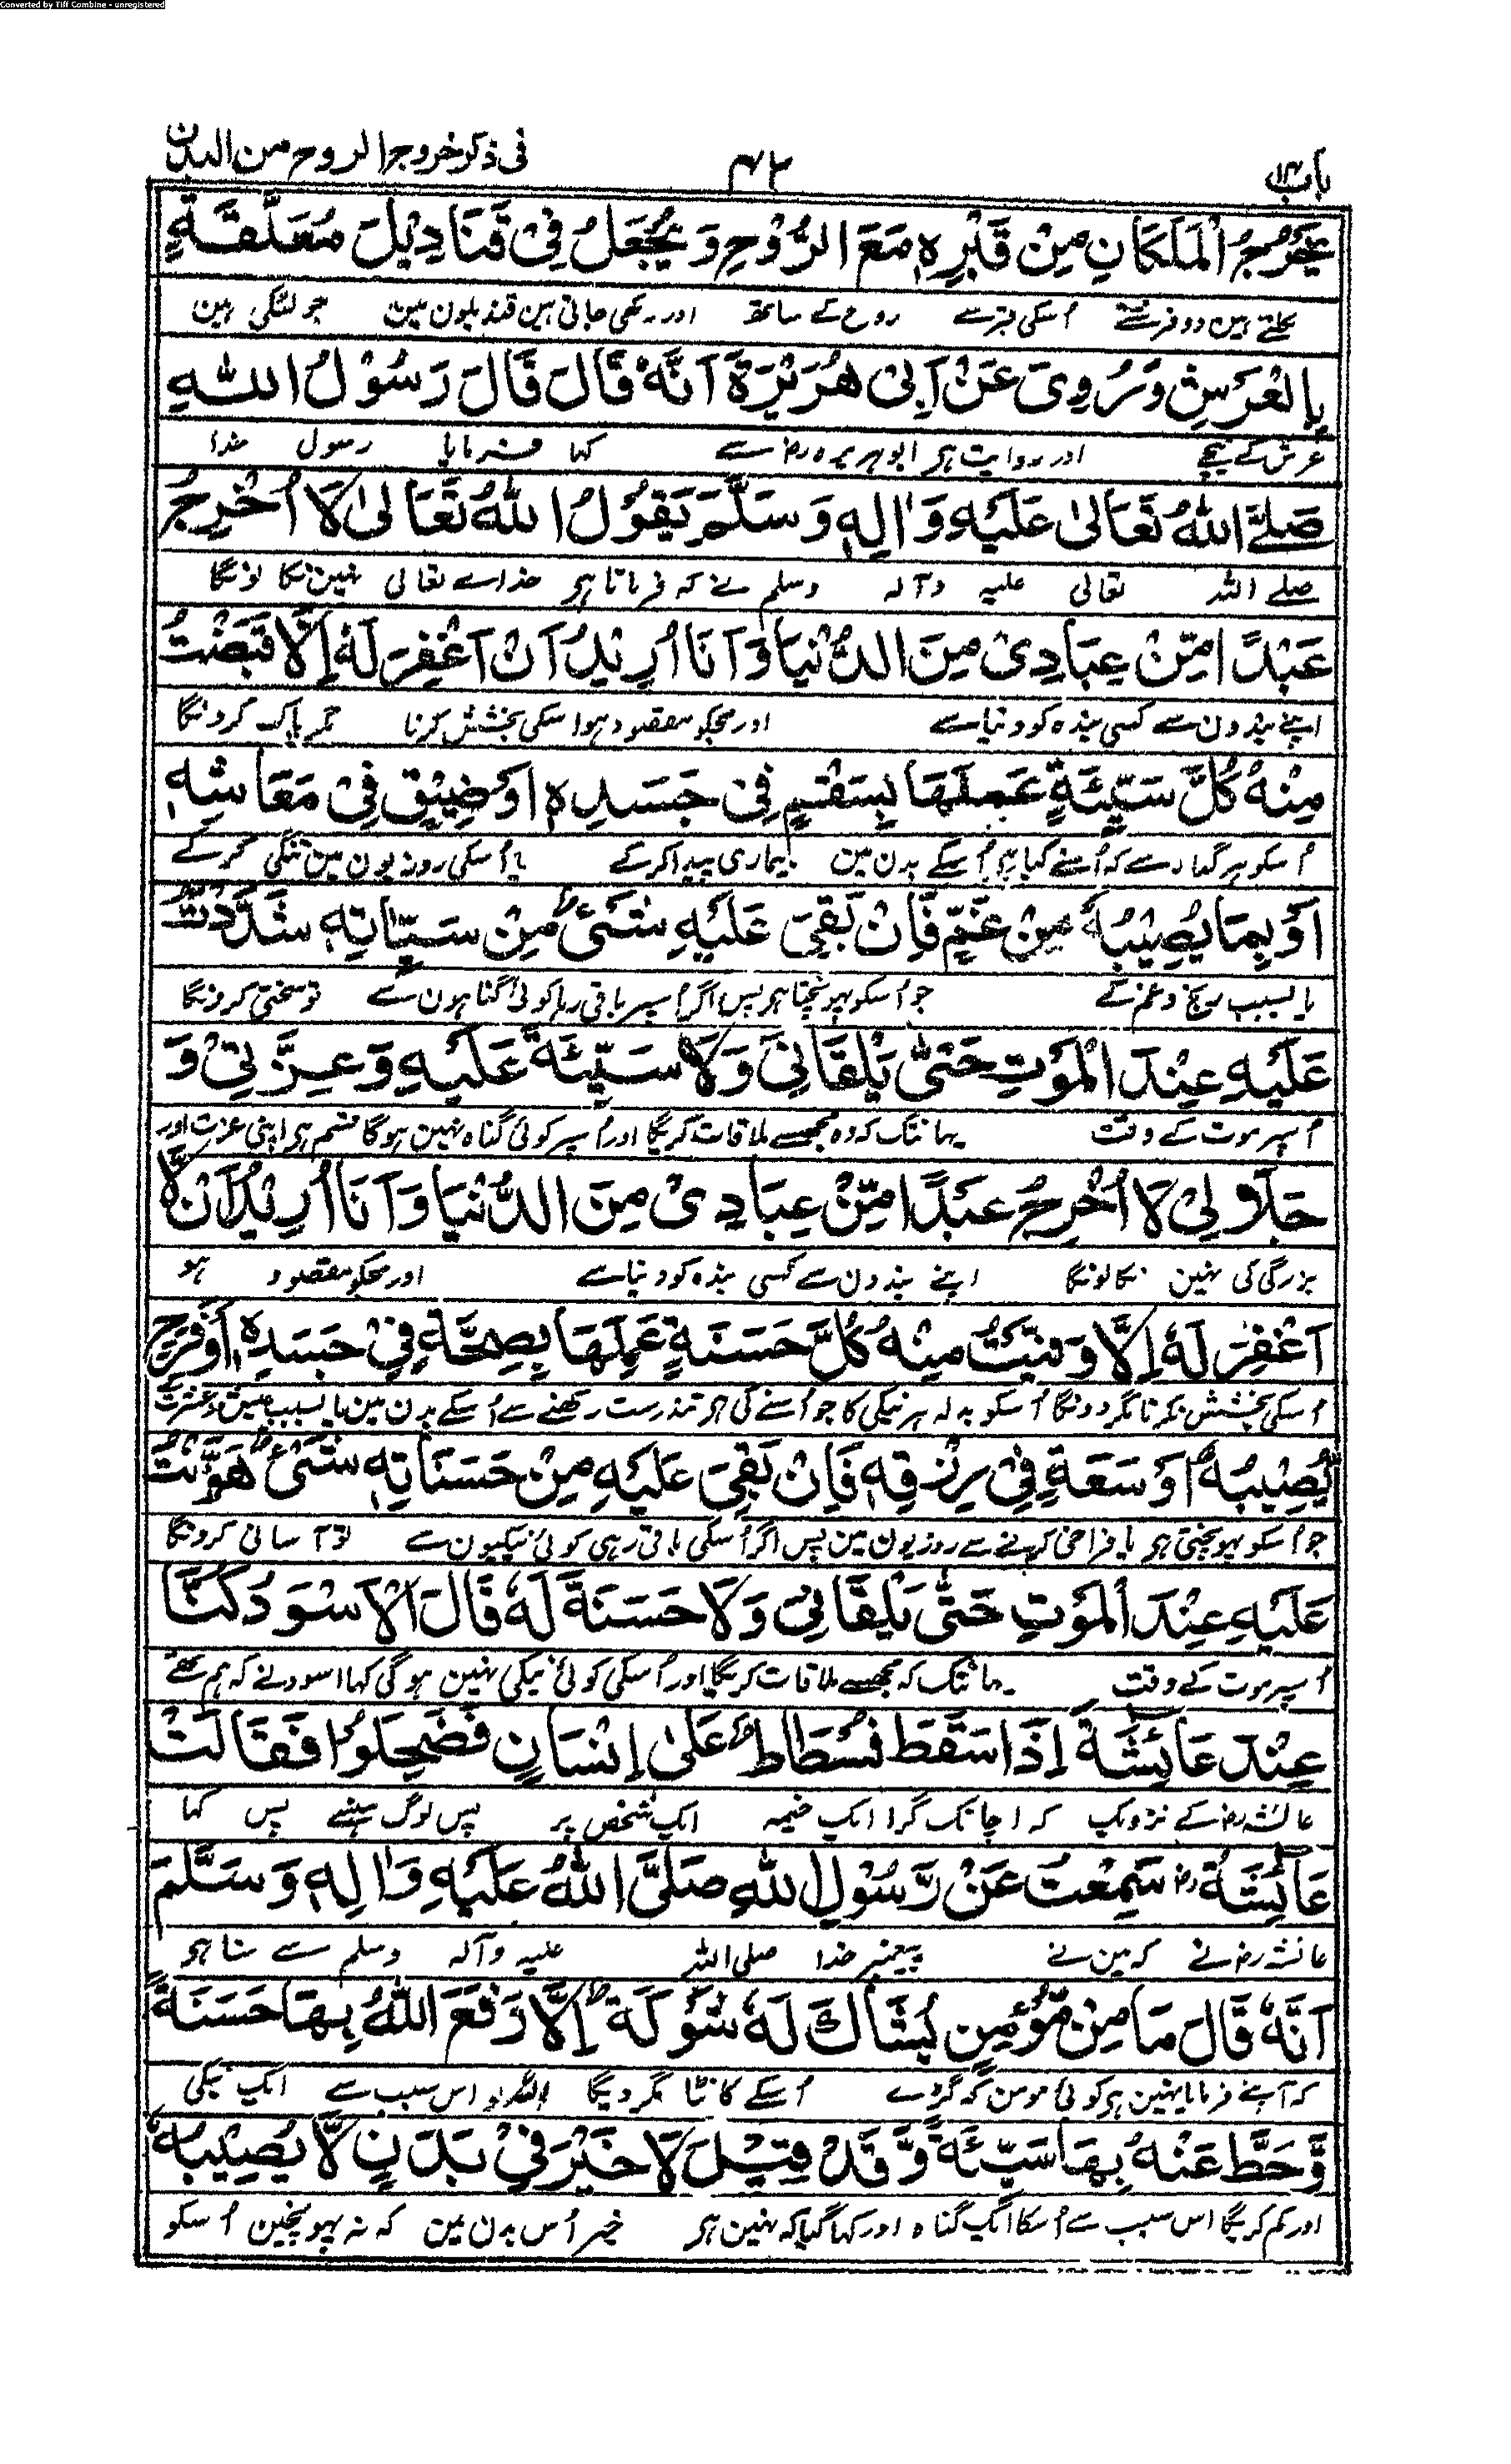 Converted by Tiff Combine - unregistered
باب ۱۴ ۴۲ فی ذکر خروج الروح من البدن
يَخْرُجُ الْمَلَكَانِ مِنْ قَبْرِهٖ مَعَ الرُّوْحِ وَيُجْعَلُ فِيْ قَنَادِيْلَ مُعَلَّقَةٍ
نکلتے ہین دو فرشتے اُسکی قبر سے روح کے ساتھ اور رکھی جاتی ہین قندیلون مین جو لٹکی ہین
بِالْعَرْشِ وَرُوِيَ عَنْ اَبِيْ هُرَيْرَةَ اَنَّهٗ قَالَ قَالَ رَسُوْلُ اللهِ
عرش کے نیچے اور روایت ہی ابوہریرہ رض سے کہا فرمایا رسول خدا
صَلَّے اللهُ تَعَالٰى عَلَيْهِ وَاٰلِهٖ وَسَلَّمَ يَقُوْلُ اللهُ تَعَالٰى لَا اُخْرِجُ
صلے اللہ تعالی علیہ وآلہ وسلم نے کہ فرماتا ہی خداے تعالی نہین نکالونگا
عَبْدًا مِّنْ عِبَادِيْ مِنَ الدُّنْيَا وَاَنَا اُرِيْدُ اَنْ اَغْفِرَ لَهٗ اِلَّا قَبَضْتُ
اپنے بندون سے کسی بندہ کو دنیا سے اور مجکو مقصود ہو اسکی بخشش کرنا مگر پاک کرونگا
مِنْهُ كُلَّ سَيِّئَةٍ عَمِلَهَا بِسَقْمٍ فِيْ جَسَدِهٖ اَوْ ضِيْقٍ فِيْ مَعَاشِهٖ
اُسکو ہر گناہ سے کہ اُسنے کیا ہی اُسکے بدن مین بیماری پیدا کرکے یا اُسکی روزیون مین تنگی کرکے
اَوْ بِمَا يُصِيْبُهٗ مِنْ غَمٍّ فَاِنْ بَقِيَ عَلَيْهِ شَيْءٌ مِنْ سَيِّاٰتِهٖ شَدَّدْتُ
یا بسبب رنج و غم کے جو اُسکو پہونچتا ہی پس اگر اُسپر باقی رہا کوئی گناہون سے تو سختی کرونگا
عَلَيْهِ عِنْدَ الْمَوْتِ حَتّٰى يَلْقَانِيْ وَلَا سَيِّئَةَ عَلَيْهِ وَعِزَّتِيْ وَ
اُسپر موت کے وقت یہانتک کہ وہ مجھسے ملاقات کریگا اور اُسپر کوئی گناہ نہین ہوگا قسم ہی اپنی عزت اور
جَلَالِيْ لَا اُخْرِجُ عَبْدًا مِّنْ عِبَادِيْ مِنَ الدُّنْيَا وَاَنَا اُرِيْدُ اَنْ لَّا
بزرگی کی نہین نکالونگا اپنے بندون سے کسی بندہ کو دنیا سے اور مجکو مقصود ہو
اَغْفِرَ لَهٗ اِلَّا وَفَّيْتُ مِنْهُ كُلَّ حَسَنَةٍ عَمِلَهَا بِصِحَّةٍ فِيْ جَسَدِهٖ اَوْ فَرَحٍ
اُسکی بخشش نکرنا مگر دونگا اُسکو بدلہ ہر نیکی کا جو اُسنے کی ہی تندرست رکھنے سے اُسکے بدن مین یا بسبب عیش و عشرت کے
يُصِيْبُهٗ اَوْ سَعَةٍ فِيْ رِزْقِهٖ فَاِنْ بَقِيَ عَلَيْهِ مِنْ حَسَنَاتِهٖ شَيْءٌ هَوَّنْتُ
جو اُسکو پہونچتی ہی یا فراخی کرنے سے روزیون مین پس اگر اُسکی باقی رہی کوئی نیکیون سے تو آسانی کرونگا
عَلَيْهِ عِنْدَ الْمَوْتِ حَتّٰى يَلْقَانِيْ وَلَا حَسَنَةَ لَهٗ قَالَ الْاَسْوَدُ كُنَّا
اُسپر موت کے وقت یہانتک کہ مجھسے ملاقات کریگا اور اُسکی کوئی نیکی نہین ہوگی کہا اسود نے کہ ہم تھے
عِنْدَ عَائِشَةَ اِذَا سَقَطَ فُسْطَاطٌ عَلٰى اِنْسَانٍ فَضَحِكُوْا فَقَالَتْ
عائشہ رض کے نزدیک کہ اچانک گرا ایک خیمہ ایک شخص پر پس لوگ ہنسے پس کہا
عَائِشَةُ رض سَمِعْتُ عَنْ رَّسُوْلِ اللهِ صَلَّى اللهُ عَلَيْهِ وَاٰلِهٖ وَسَلَّمَ
عائشہ رض نے کہ مین نے پیغمبر خدا صلی اللہ علیہ وآلہ وسلم سے سنا ہی
اَنَّهٗ قَالَ مَا مِنْ مُّؤْمِنٍ يُشَاكُ لَهٗ شَوْكَةٌ اِلَّا رَفَعَ اللهُ بِهَا حَسَنَةً
کہ آپنے فرمایا نہین ہی کوئی مومن کہ گڑے اُسکے کانٹا مگر دیگا اللہ اس سبب سے ایک نیکی
وَّحَطَّ عَنْهُ بِهَا سَيِّئَةً وَّقَدْ قِيْلَ لَا خَيْرَ فِيْ بَدَنٍ لَّا يُصِيْبُهٗ
اور کم کریگا اس سبب سے اُسکا ایک گناہ اور کہا گیا کہ نہین ہی خیر اُس بدن مین کہ نہ پہونچین اُسکو